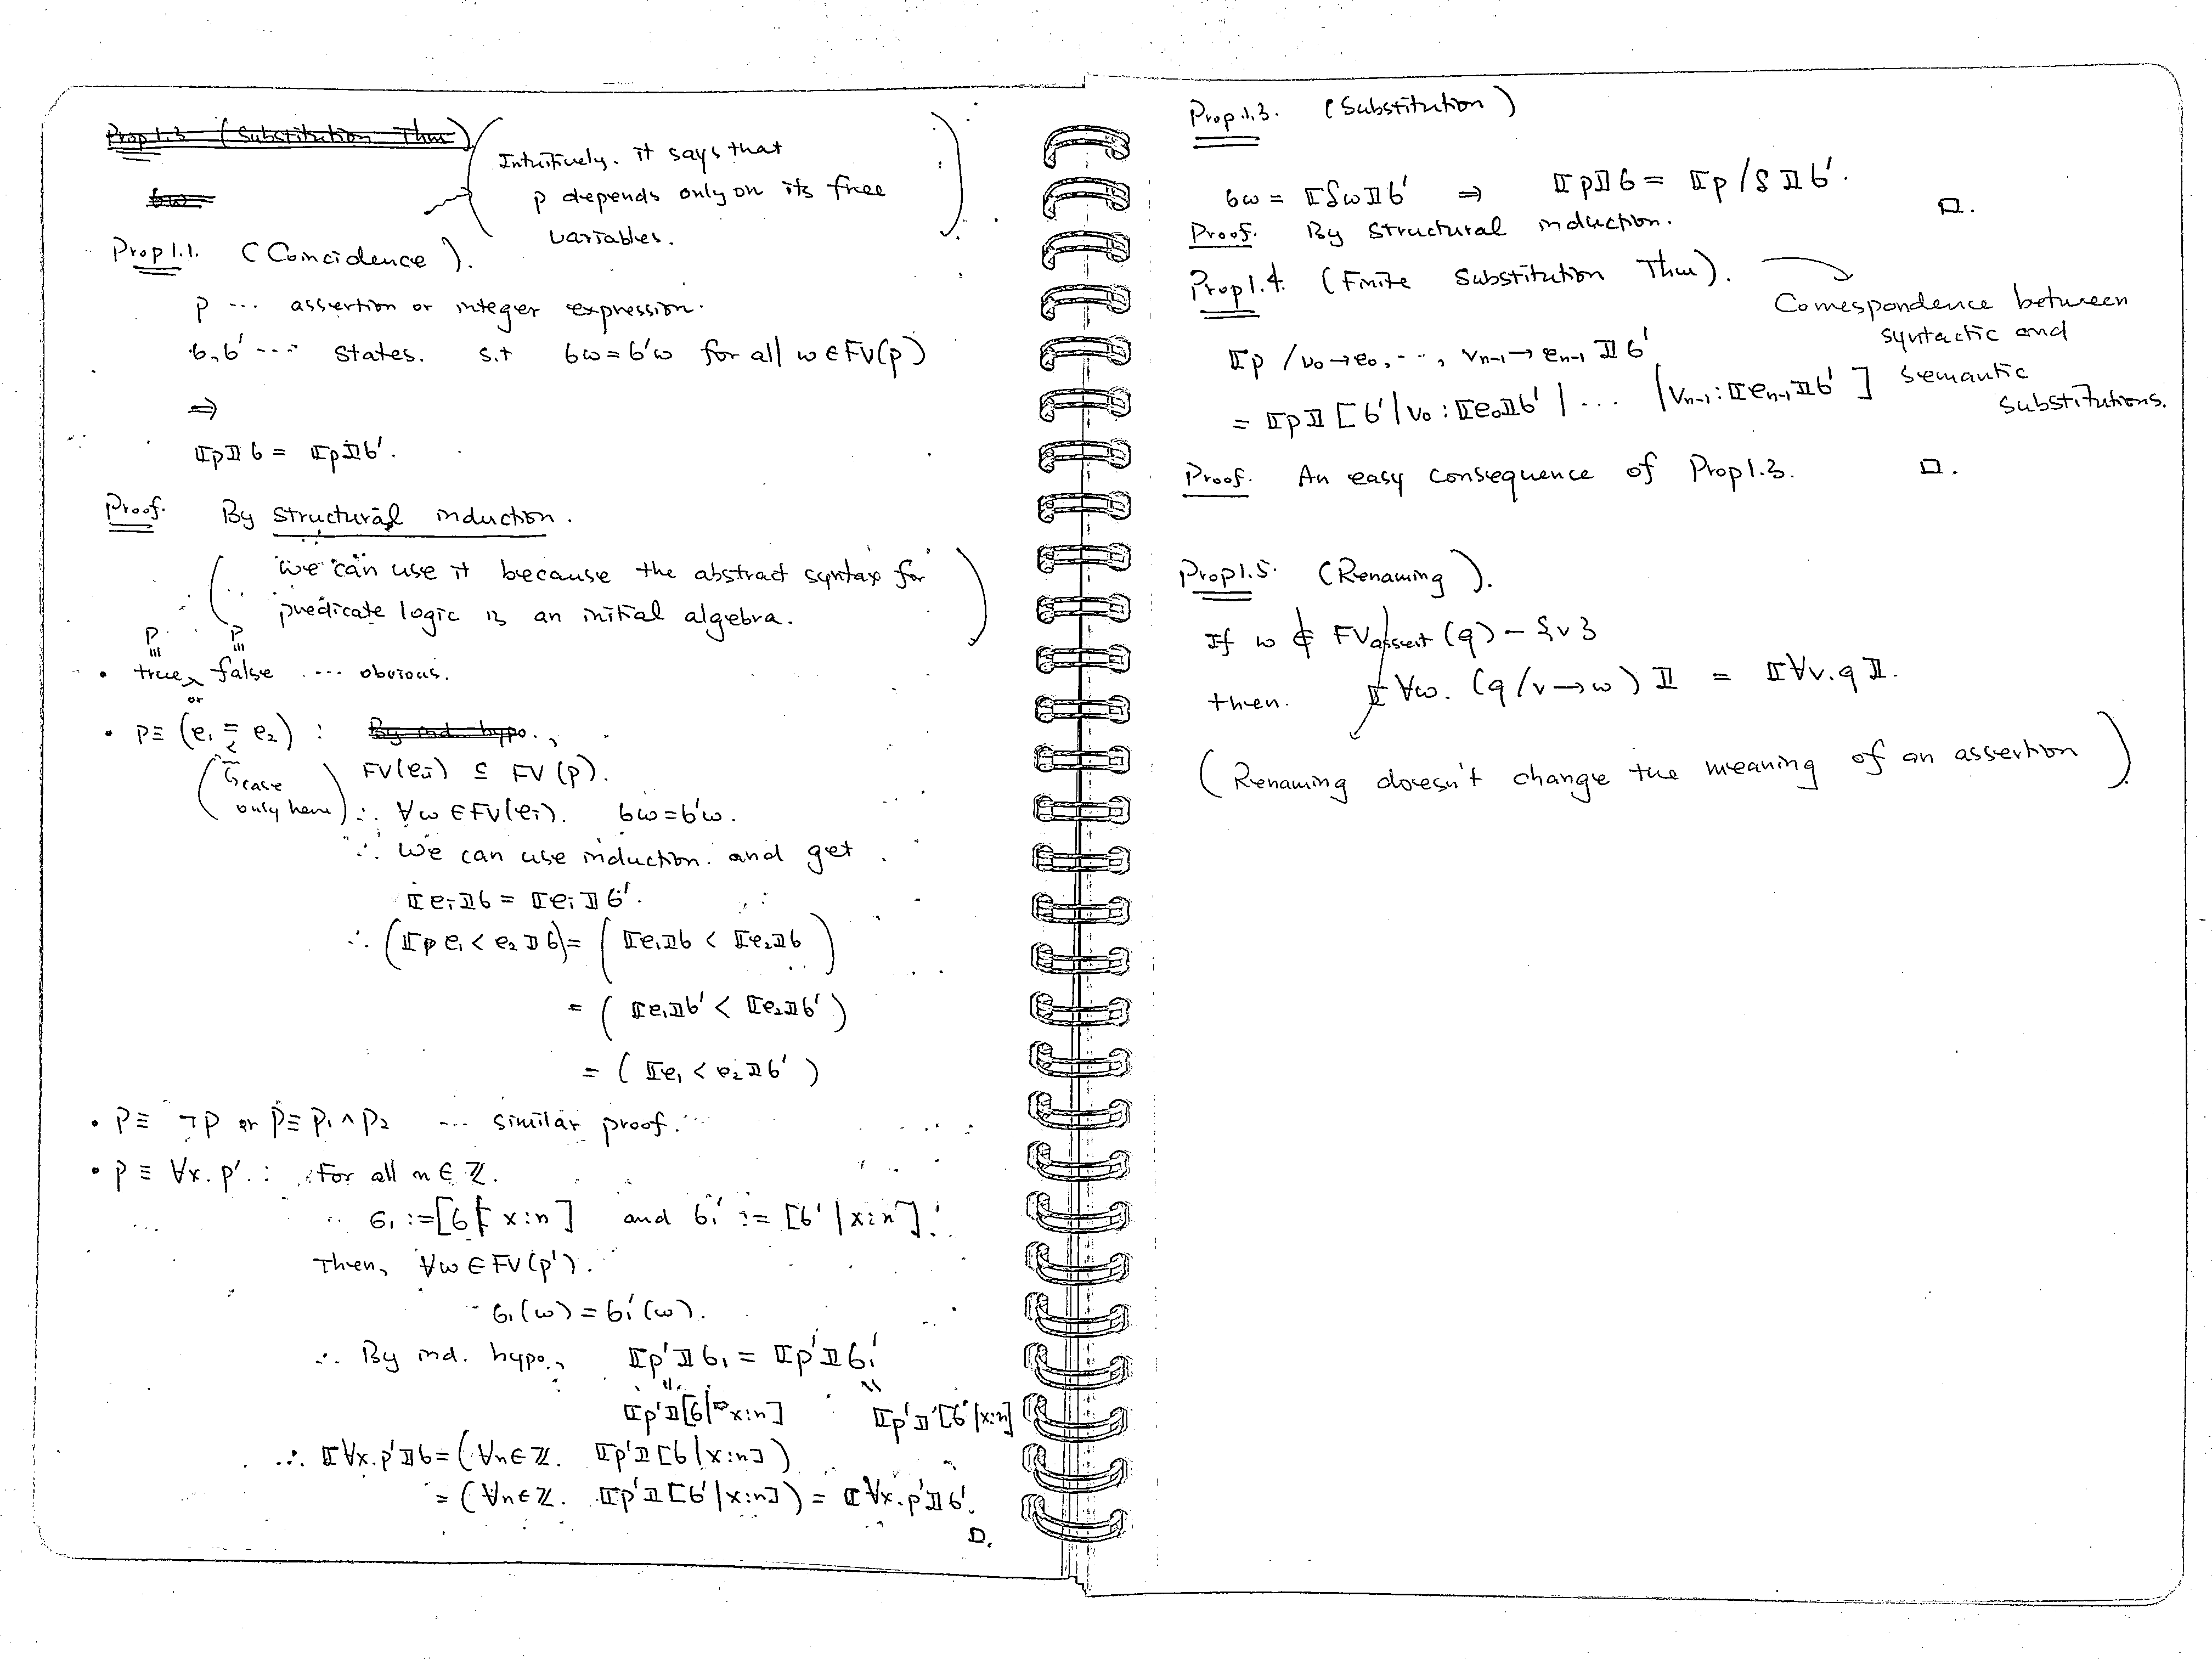 Prop 1.3 (Substitution Thm)
σω =
( Intuitively, it says that
p depends only on its free
variables. )
Prop 1.1. (Coincidence).
p ... assertion or integer expression.
σ, σ' ... states. s.t σω = σ'ω for all ω ∈ FV(p)
⇒
⟦p⟧σ = ⟦p⟧σ'.
Proof. By structural induction.
( we can use it because the abstract syntax for
predicate logic is an initial algebra. )
p p
≡ ≡
• true, false ... obvious.
or
• p ≡ (e₁ = e₂) : By ind. hypo.,
<
( case
only here )
FV(eᵢ) ⊆ FV(p).
∴ ∀ω ∈ FV(eᵢ). σω = σ'ω.
∴ We can use induction. and get
⟦eᵢ⟧σ = ⟦eᵢ⟧σ'.
∴ (⟦p e₁ < e₂⟧σ) = ( ⟦e₁⟧σ < ⟦e₂⟧σ )
= ( ⟦e₁⟧σ' < ⟦e₂⟧σ' )
= ( ⟦e₁ < e₂⟧σ' )
• p ≡ ¬p or p ≡ p₁ ∧ p₂ ... similar proof.
• p ≡ ∀x. p'. : For all n ∈ ℤ.
σ₁ := [σ | x:n] and σ₁' := [σ' | x:n].
Then, ∀ω ∈ FV(p').
σ₁(ω) = σ₁'(ω).
∴ By ind. hypo., ⟦p'⟧σ₁ = ⟦p'⟧σ₁'
" "
⟦p'⟧[σ | x:n] ⟦p'⟧[σ' | x:n]
∴ ⟦∀x. p'⟧σ = (∀n ∈ ℤ. ⟦p'⟧[σ | x:n])
= (∀n ∈ ℤ. ⟦p'⟧[σ' | x:n]) = ⟦∀x. p'⟧σ'.
□.
Prop 1.3. (Substitution)
σω = ⟦δω⟧σ' ⇒ ⟦p⟧σ = ⟦p/δ⟧σ'.
Proof. By structural induction. □.
Prop 1.4. (Finite Substitution Thm).
Correspondence between
syntactic and
semantic
substitutions.
⟦p / v₀→e₀, ..., vₙ₋₁→eₙ₋₁⟧σ'
= ⟦p⟧[σ' | v₀ : ⟦e₀⟧σ' | ... | vₙ₋₁ : ⟦eₙ₋₁⟧σ']
Proof. An easy consequence of Prop 1.3. □.
Prop 1.5. (Renaming).
If ω ∉ FVassert(q) - {v}
then. ⟦∀ω. (q/v→ω)⟧ = ⟦∀v. q⟧.
( Renaming doesn't change the meaning of an assertion )